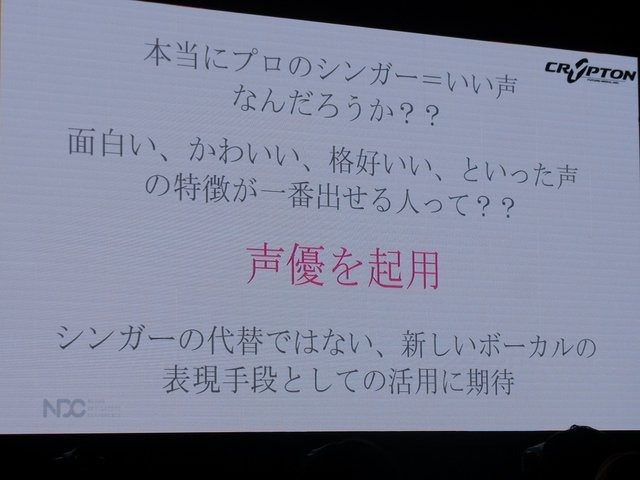 本当にプロのシンガー＝いい声
なんだろうか？？
CRYPTON
面白い、かわいい、格好いい、といった声
の特徴が一番出せる人って？？
声優を起用
シンガーの代替ではない、新しいボーカルの
表現手段としての活用に期待
NDC